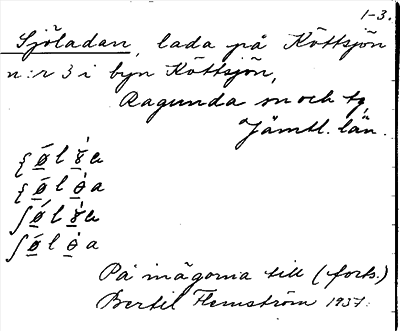 1-3.
Sjöladan, lada på Köttsjön
n:r 3 i byn Köttsjön,
Ragunda sn och tg,
Jämtl. län.
På mägorna till (forts.)
Bertil Flemström 1937.